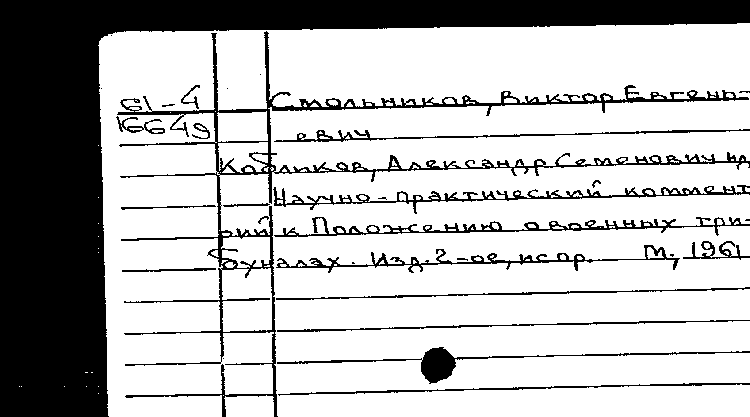 61-4
16649
Смольников, Виктор Евгень-
евич
Кобликов, Александр Семенович и д
Научно-практический коммент
рий к Положению о военных три-
буналах. Изд. 2-ое, испр. М., 1961